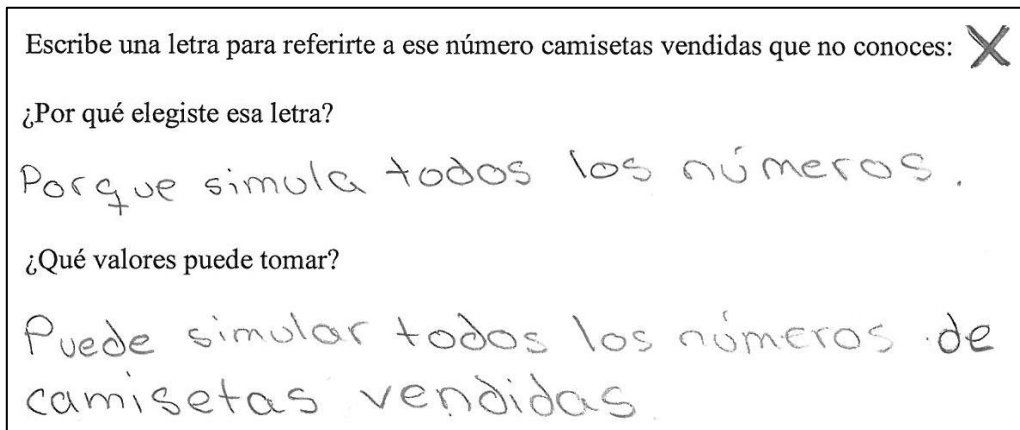 Escribe una letra para referirte a ese número camisetas vendidas que no conoces: X
¿Por qué elegiste esa letra?
Porque simula todos los números.
¿Qué valores puede tomar?
Puede simular todos los números de
camisetas vendidas